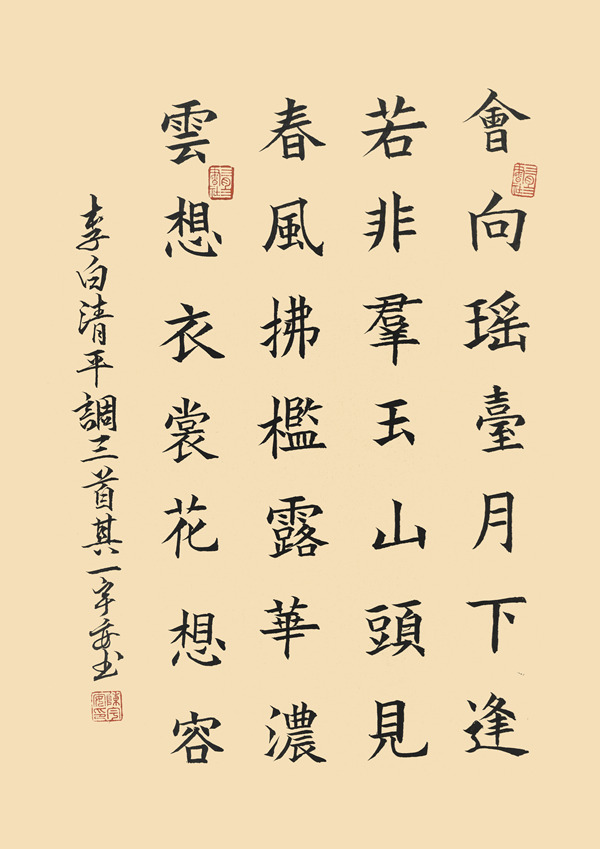 會向瑶臺月下逢
若非羣玉山頭見
春風拂檻露華濃
雲想衣裳花想容
李白清平調三首其一宇书